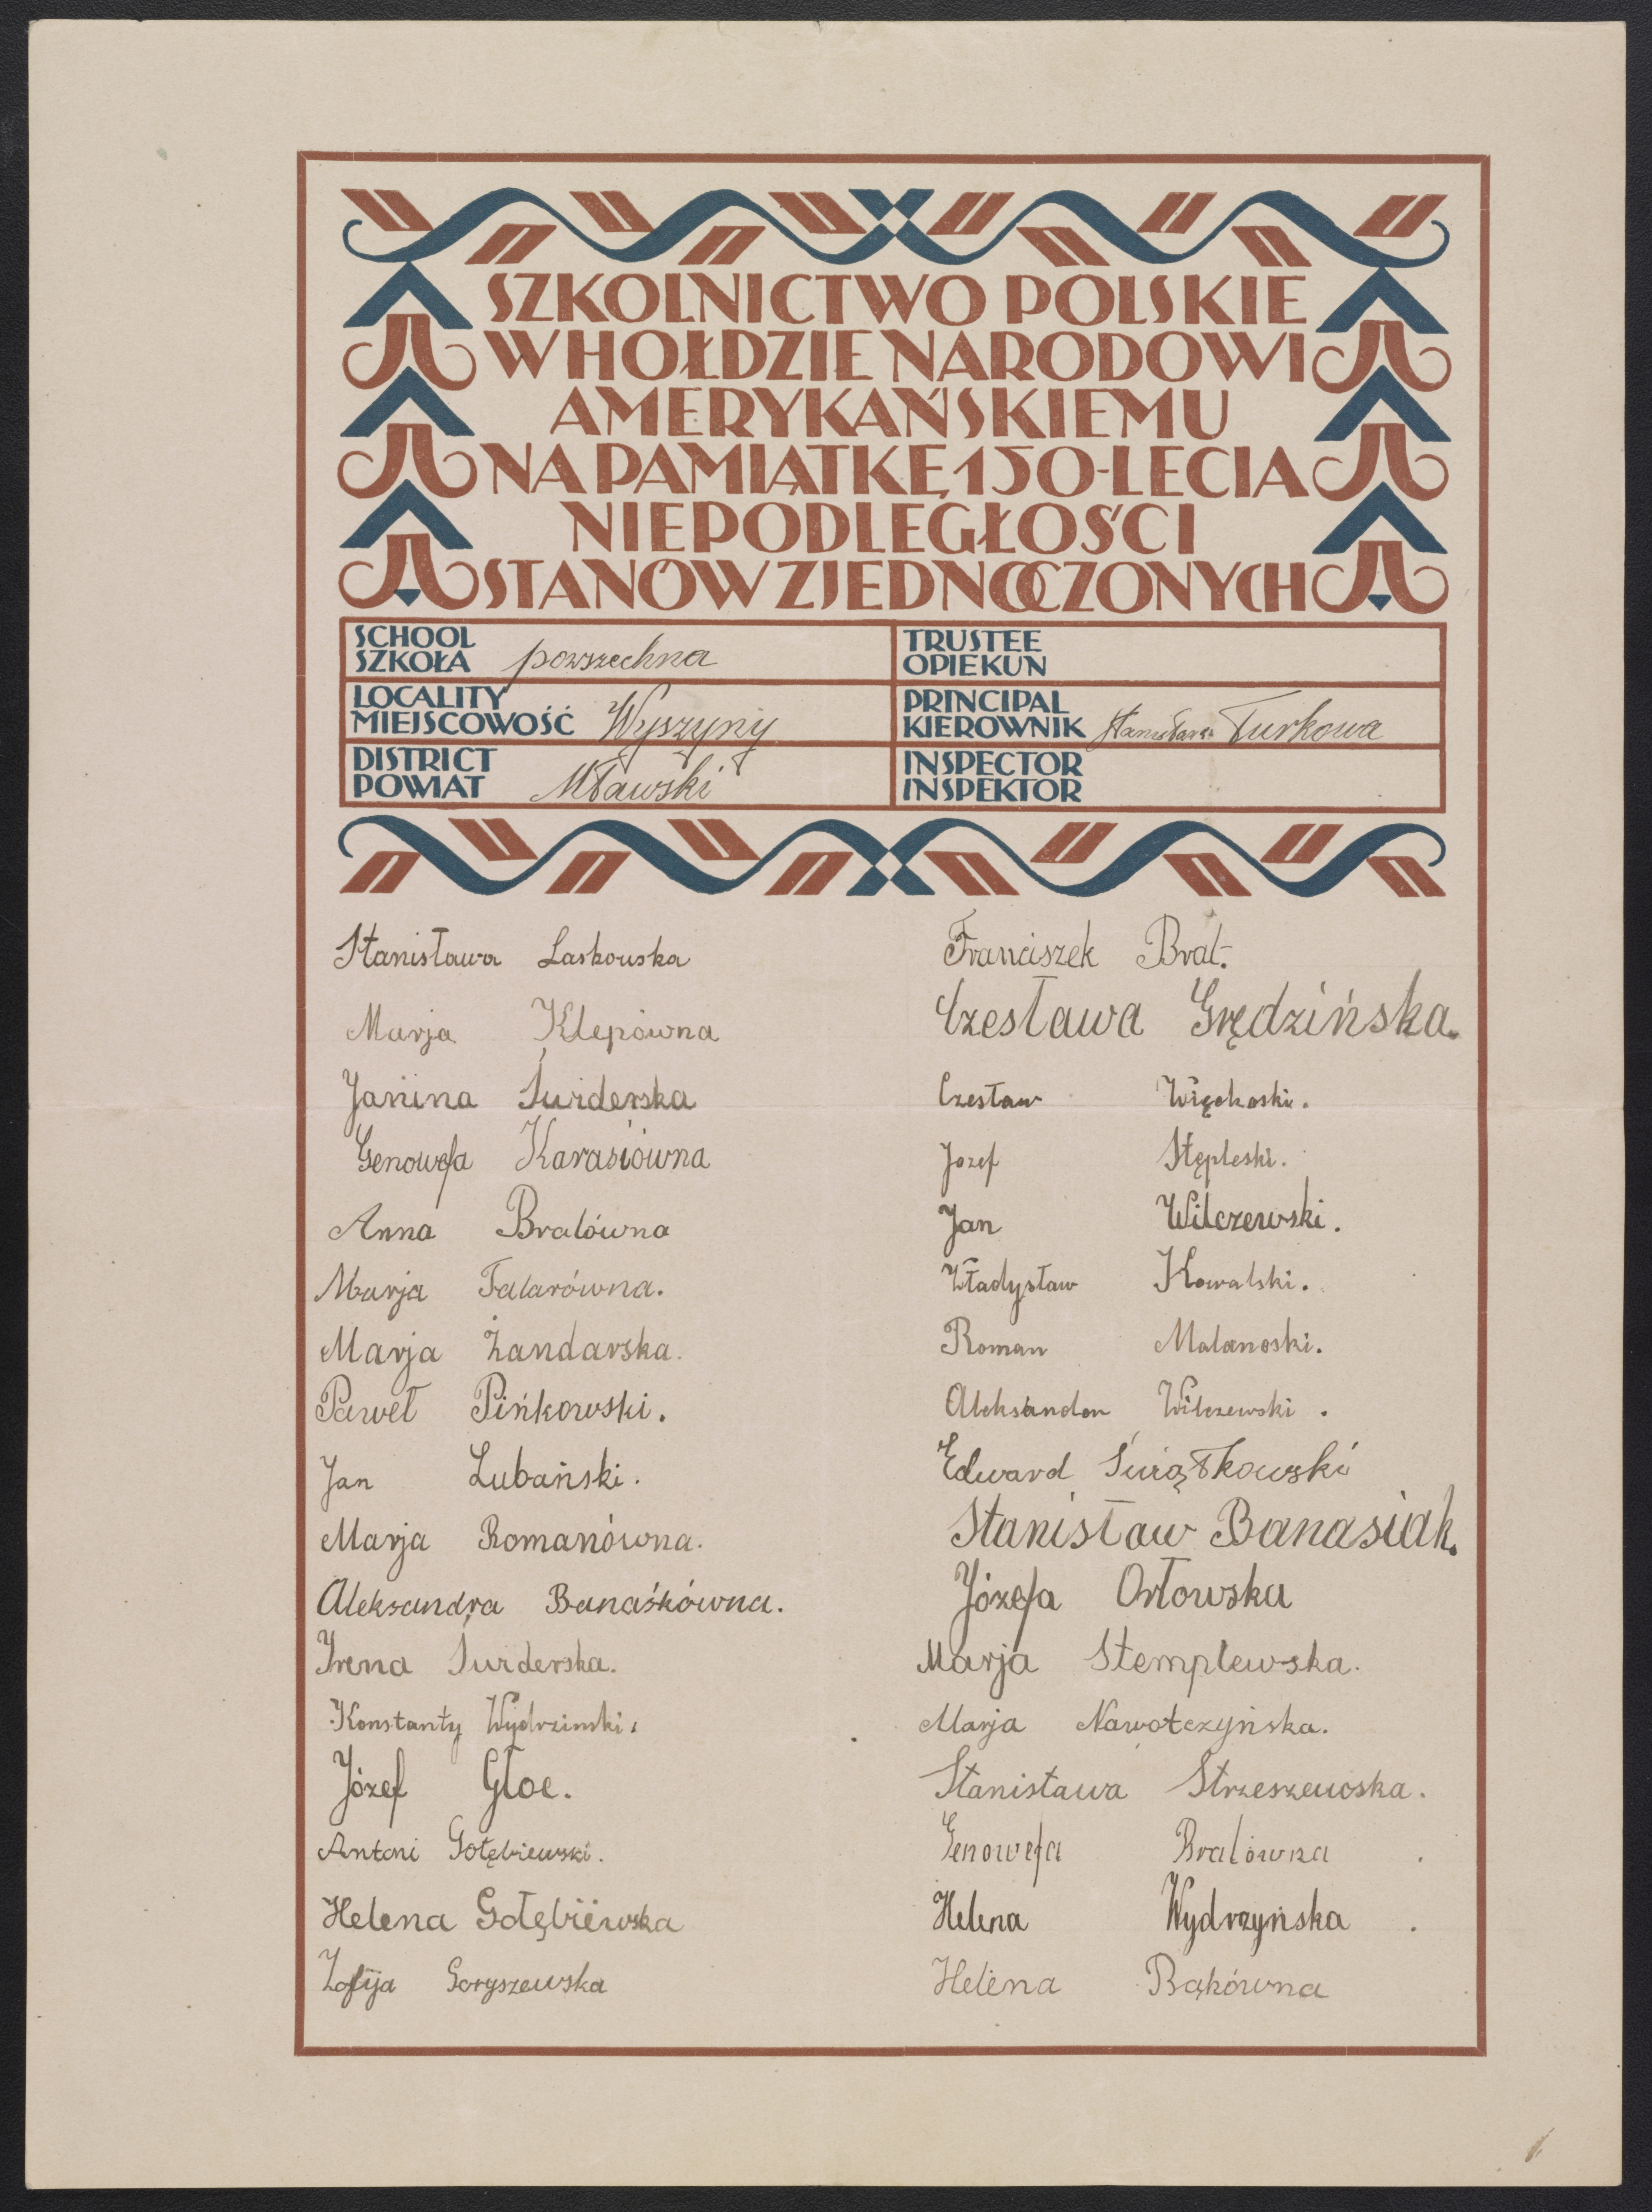 SZKOLNICTWO POLSKIE
W HOŁDZIE NARODOWI
AMERYKAŃSKIEMU
NA PAMIĄTKĘ 150-LECIA
NIEPODLEGŁOŚCI
STANÓW ZJEDNOCZONYCH
SCHOOL
SZKOŁA powszechna
TRUSTEE
OPIEKUN
LOCALITY
MIEJSCOWOŚĆ Wyszyny
PRINCIPAL
KIEROWNIK Stanisława Turkowa
DISTRICT
POWIAT Mławski
INSPECTOR
INSPEKTOR
Stanisława Laskowska
Marja Klepówna
Janina Świderska
Genowefa Karasiówna
Anna Bralówna
Marja Falarówna.
Marja Żandarska.
Paweł Pińkowski.
Jan Lubański.
Marja Romanówna.
Aleksandra Banaśkówna.
Irena Świderska.
Konstanty Wydrzinski.
Józef Głoc.
Antoni Gołębiewski.
Helena Gołębiewska
Zofija Goryszewska
Franciszek Bral.
Czesława Grędzińska.
Czesław Więckoski.
Jozef Stępleski.
Jan Wilczewski.
Władysław Kowalski.
Roman Malanoski.
Aleksander Wilczewski.
Edward Świątkowski
Stanisław Banasiak.
Józefa Orłowska
Marja Stemplewska.
Marja Nawotczyńska.
Stanisława Strzeszewska.
Genowefa Bralówna.
Helena Wydrzyńska.
Helena Bąkówna